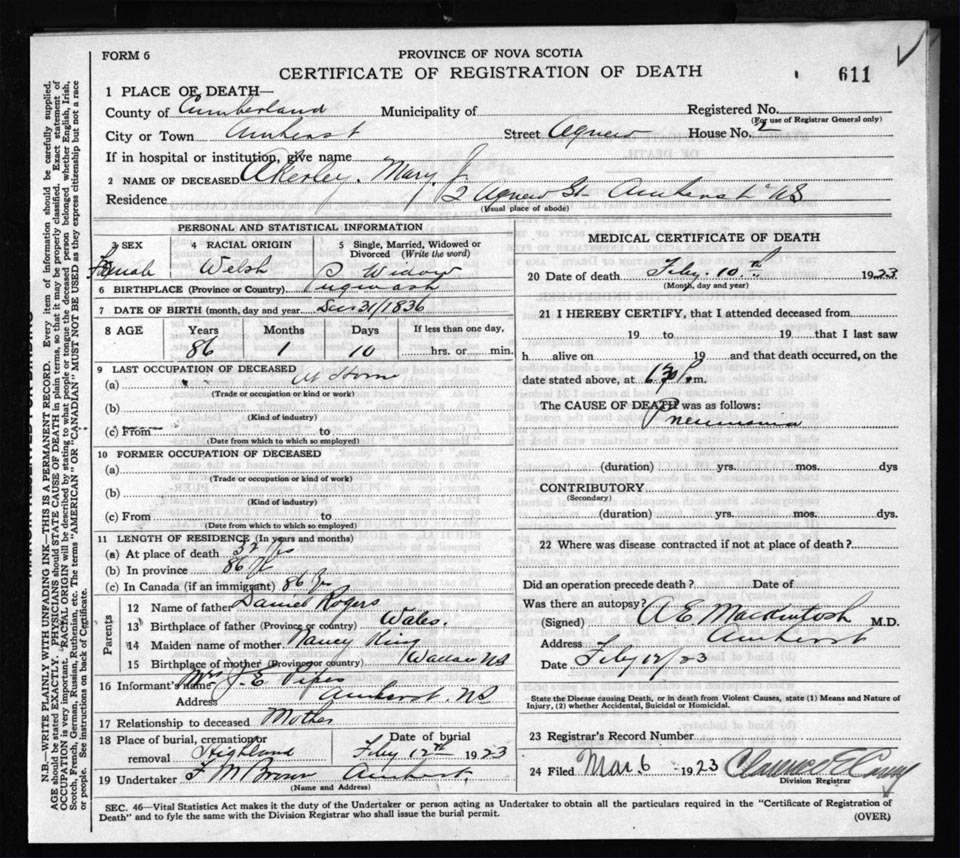 FORM 6
PROVINCE OF NOVA SCOTIA
CERTIFICATE OF REGISTRATION OF DEATH
611
1 PLACE OF DEATH—
County of Cumberland Municipality of Registered No.
(For use of Registrar General only)
City or Town Amherst Street Agnew House No. 2
If in hospital or institution, give name
2 NAME OF DECEASED Akerley. Mary J.
Residence 2 Agnew St. Amherst NS
(Usual place of abode)
PERSONAL AND STATISTICAL INFORMATION
3 SEX 4 RACIAL ORIGIN 5 Single, Married, Widowed or Divorced (Write the word)
Female Welsh Widow
6 BIRTHPLACE (Province or Country) Pugwash
7 DATE OF BIRTH (month, day and year 31/1836
8 AGE Years Months Days If less than one day,
86 1 10 hrs. or min.
9 LAST OCCUPATION OF DECEASED
(a) At Home
(Trade or occupation or kind or work)
(b)
(Kind of industry)
(c) From to
(Date from which to which so employed)
10 FORMER OCCUPATION OF DECEASED
(a)
(Trade or occupation or kind of work)
(b)
(Kind of industry)
(c) From to
(Date from which to which so employed)
11 LENGTH OF RESIDENCE (In years and months)
(a) At place of death yrs
(b) In province 86 yr
(c) In Canada (if an immigrant) 86 yr
Parents
12 Name of father Daniel Rogers
13 Birthplace of father (Province or country) Wales.
14 Maiden name of mother Nancy King
15 Birthplace of mother (Province or country) Wallace NS
16 Informant's name Mrs J. E. Pipes
Address Amherst. NS
17 Relationship to deceased Mother
18 Place of burial, cremation or removal Highland Date of burial Feby 12th 1923
19 Undertaker F M Brown Amherst.
(Name and Address)
MEDICAL CERTIFICATE OF DEATH
20 Date of death Feby. 10th 1923
(Month, day and year)
21 I HEREBY CERTIFY, that I attended deceased from
19 to 19 that I last saw
h alive on 19 and that death occurred, on the
date stated above, at P.m.
The CAUSE OF DEATH was as follows:
Pneumonia
(duration) yrs. mos. dys
CONTRIBUTORY
(Secondary)
(duration) yrs. mos. dys.
22 Where was disease contracted if not at place of death?
Did an operation precede death? Date of
Was there an autopsy?
(Signed) A E Mackintosh M.D.
Address Amherst
Date Feby 12/23
State the Disease causing Death, or in death from Violent Causes, state (1) Means and Nature of Injury, (2) whether Accidental, Suicidal or Homicidal.
23 Registrar's Record Number
24 Filed Mar. 6 1923 Clarence E
Division Registrar
SEC. 46—Vital Statistics Act makes it the duty of the Undertaker or person acting as Undertaker to obtain all the particulars required in the "Certificate of Registration of
Death" and to fyle the same with the Division Registrar who shall issue the burial permit.
(OVER)
N.B.—WRITE PLAINLY WITH UNFADING INK—THIS IS A PERMANENT RECORD. Every item of information should be carefully supplied.
AGE should be stated EXACTLY. PHYSICIANS should STATE CAUSE OF DEATH in plain terms, so that it may be properly classified. Exact statement of
OCCUPATION is very important. "RACIAL ORIGIN will be described by stating to what people or tongue the deceased person belonged whether English, Irish,
Scotch, French, German, Russian, Ruthenian, etc. The terms "AMERICAN" OR "CANADIAN" MUST NOT BE USED as they express citizenship but not a race
or people. See instructions on back of Certificate.